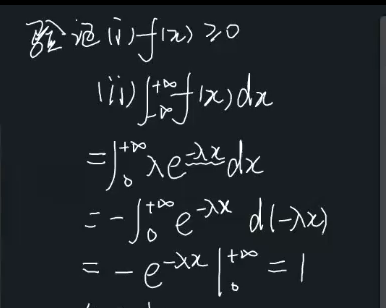 验证(i) f(x)≥0
(ii) ∫_{-∞}^{+∞} f(x)dx
=∫_0^{+∞} λe^{-λx}dx
=-∫_0^{+∞} e^{-λx} d(-λx)
=-e^{-λx}|_0^{+∞}=1